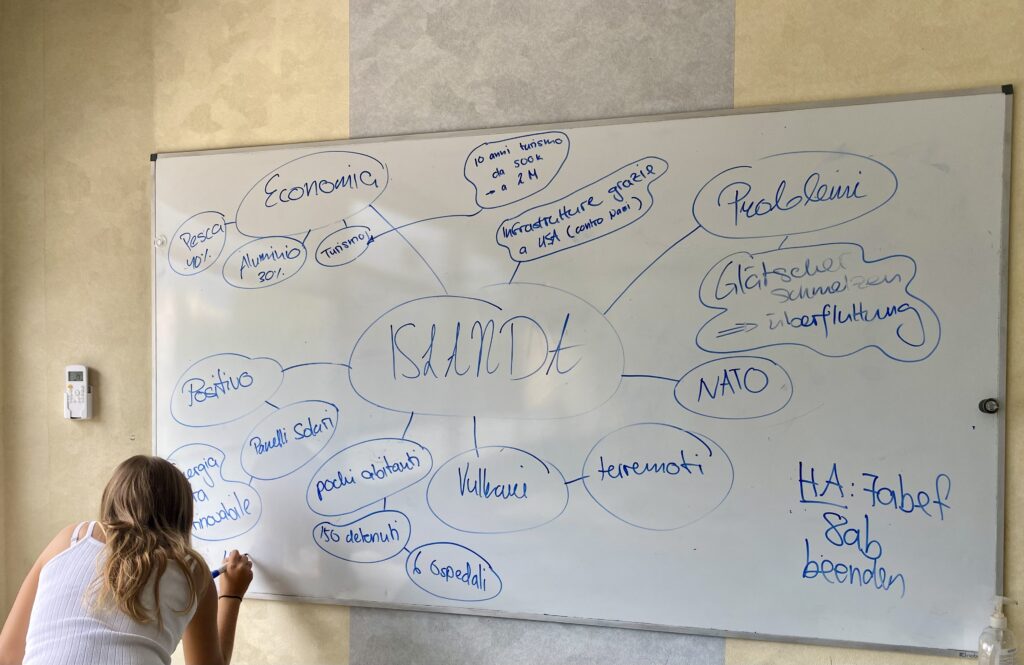 Economia
Pesca
40%
Aluminio
30%
Turismo
10 anni turismo
da 500k
→ a 2 M
Infrastrutture grazie
a USA (contro nami)
Problemi
Glätscher
schmelzen
⇒ überfluttung
ISLANDA
NATO
Positivo
Panelli Solari
rinnovabile
pochi abitanti
150 detenuti
6 ospedali
Vulkani
terremoti
HA: 7abef
8ab
beenden